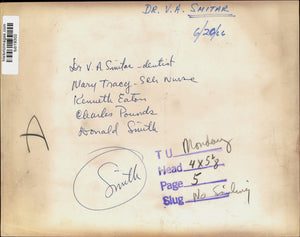 DR. V.A. SMITAR
6/20/66
Dr V.A Smitar - dentist
Mary Tracy - Sch Nurse
Kenneth Eaton
Charles Pounds
Donald Smith
Smith
T U Monday
Head 4x5⅜
Page 5
Slug No Smiling